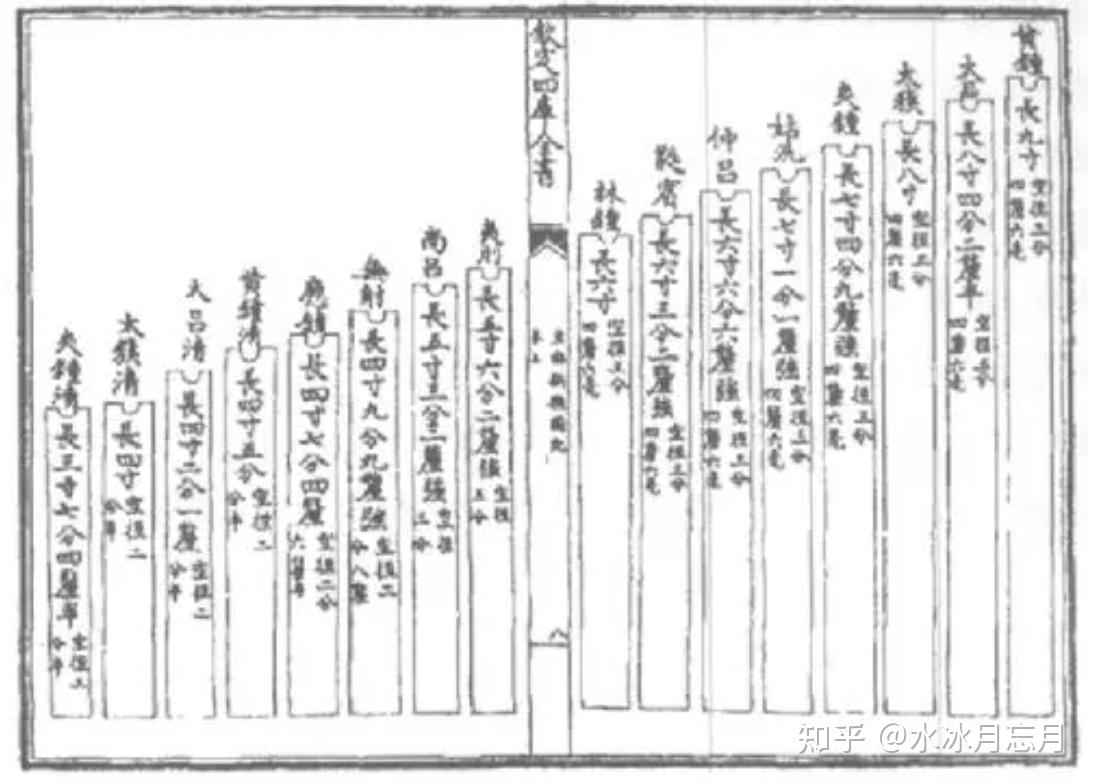 黄鐘
長九寸
空徑三分
四釐六毫
大呂
長八寸四分二釐半
空徑三分
四釐六毫
太簇
長八寸
空徑三分
四釐六毫
夾鐘
長七寸四分九釐強
空徑三分
四釐六毫
姑洗
長七寸一分一釐強
空徑三分
四釐六毫
仲呂
長六寸六分六釐強
空徑三分
四釐六毫
蕤賓
長六寸三分二釐強
空徑三分
四釐六毫
林鐘
長六寸
空徑三分
四釐六毫
欽定四庫全書
卷上
八
夷則
長五寸六分二釐強
空徑
三分
南呂
長五寸三分三釐強
空徑
三分
無射
長四寸九分九釐強
空徑二
分八釐
應鐘
長四寸七分四釐
空徑二分
六釐半
黄鐘清
長四寸五分
空徑二
分半
大呂清
長四寸二分一釐
空徑二
分半
太簇清
長四寸
空徑二
分半
夾鐘清
長三寸七分四釐半
空徑二
分半
知乎 @水冰月忘月